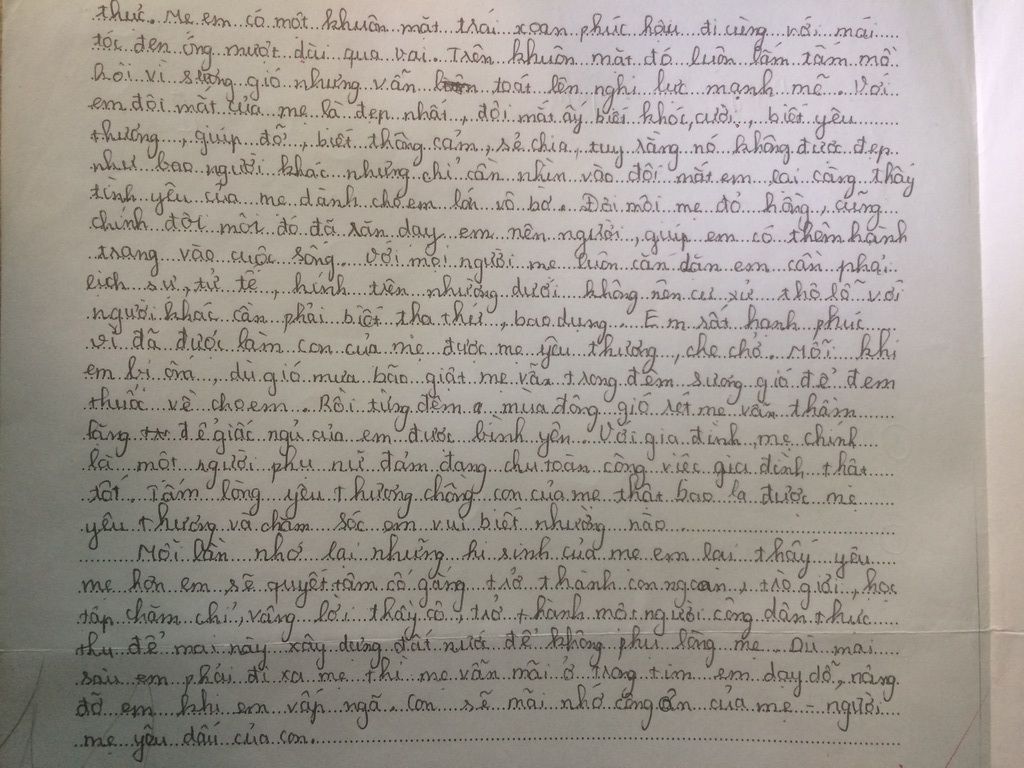 thức. Mẹ em có một khuôn mặt trái xoan phúc hậu đi cùng với mái
tóc đen óng mượt dài qua vai. Trên khuôn mặt đó luôn lấm tấm mồ
hôi vì sương gió nhưng vẫn toát lên nghị lực mạnh mẽ. Với
em đôi mắt của mẹ là đẹp nhất, đôi mắt ấy biết khóc, cười, biết yêu
thương, giúp đỡ, biết thông cảm, sẻ chia, tuy rằng nó không được đẹp
như bao người khác nhưng chỉ cần nhìn vào đôi mắt em lại càng thấy
tình yêu của mẹ dành cho em lớn vô bờ. Đôi môi mẹ đỏ hồng, cũng
chính đôi môi đó đã răn dạy em nên người, giúp em có thêm hành
trang vào cuộc sống. Với mọi người mẹ luôn căn dặn em cần phải
lịch sự, tử tế, kính trên nhường dưới không nên cư xử thô lỗ với
người khác cần phải biết tha thứ, bao dung. Em rất hạnh phúc
vì đã được làm con của mẹ được mẹ yêu thương, che chở. Mỗi khi
em bị ốm, dù gió mưa bão giật mẹ vẫn trong đêm sương gió để đem
thuốc về cho em. Rồi từng đêm mùa đông gió rét mẹ vẫn thầm
lặng để giấc ngủ của em được bình yên. Với gia đình, mẹ chính
là một người phụ nữ đảm đang chu toàn công việc gia đình thật
tốt. Tấm lòng yêu thương chồng con của mẹ thật bao la được mẹ
yêu thương và chăm sóc em vui biết nhường nào
Mỗi lần nhớ lại những hi sinh của mẹ em lại thấy yêu
mẹ hơn em sẽ quyết tâm cố gắng trở thành con ngoan, trò giỏi, học
tập chăm chỉ, vâng lời thầy cô, trở thành một người công dân thực
thụ để mai này xây dựng đất nước để không phụ lòng mẹ. Dù mai
sau em phải đi xa mẹ thì mẹ vẫn mãi ở trong tim em dạy dỗ, nâng
đỡ em khi em vấp ngã. Con sẽ mãi nhớ công ơn của mẹ - người
mẹ yêu dấu của con.